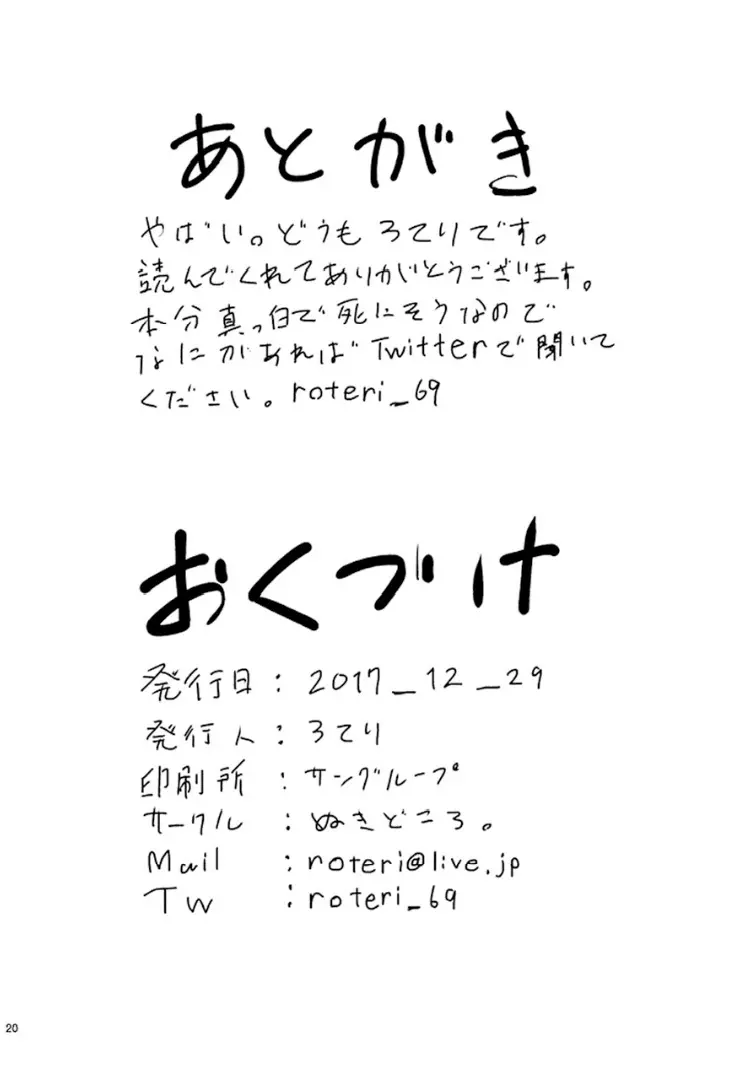 あとがき
やばい。どうも ろてりです。
読んでくれてありがとうございます。
本分真っ白で死にそうなので
なにかあれば Twitterで聞いて
ください。roteri_69
おくづけ
発行日：2017_12_29
発行人：ろてり
印刷所：サングループ
サークル：ぬきどころ。
Mail：roteri@live.jp
Tw：roteri_69
20